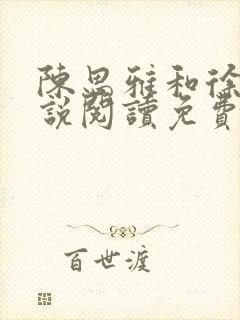 陳思雅和徐
說閱讀免費
百世渡